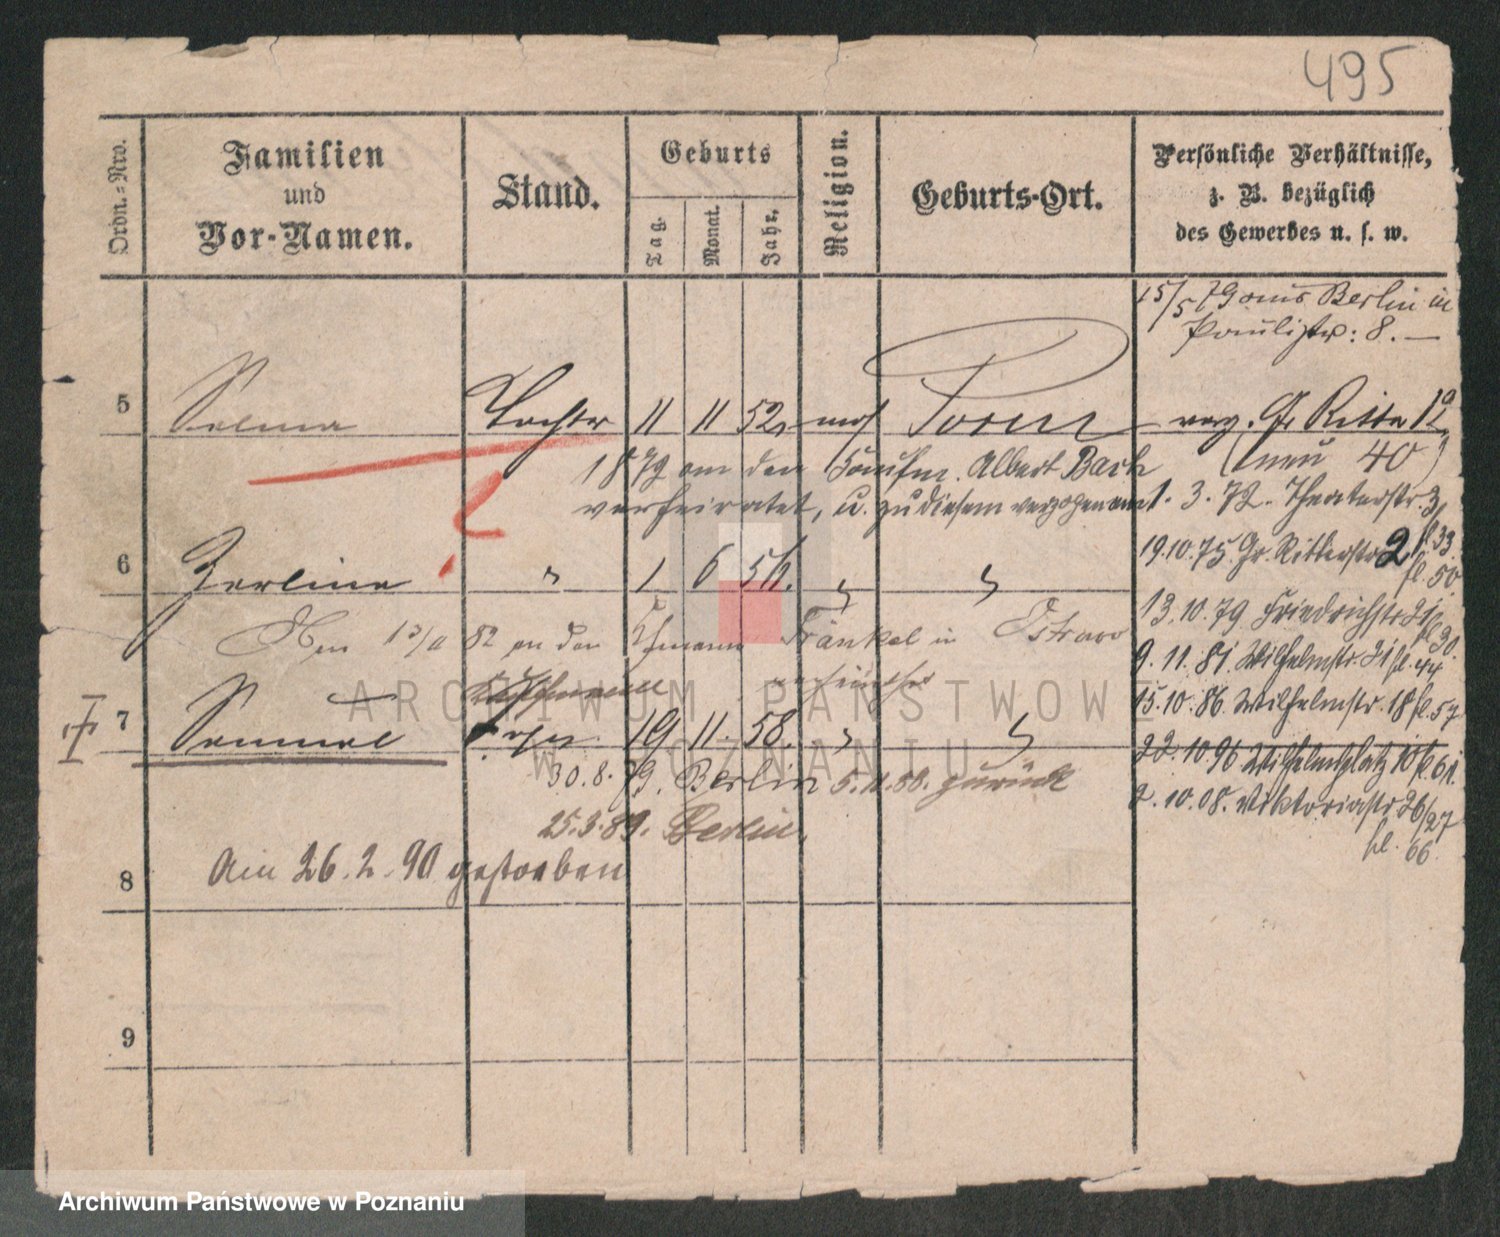 495
Ordn.=Nro.
Familien
und
Vor-Namen.
Stand.
Geburts
Tag.
Monat.
Jahr.
Religion.
Geburts-Ort.
Persönliche Verhältnisse,
z. B. bezüglich
des Gewerbes u. s. w.
15/5 79 aus Berlin in
Paulistr: 8. —
5 Selma Tochter 11 11 52 mos Posen verz. Gr Ritter 12a
(neu 40)
1872 an den Kaufm. Albert Bach
verheiratet, u. zu diesem verzogen am 1. 3. 72. Theaterstr. 3
19.10.75. Gr. Ritterstr 2 fl. 33.
fl. 50
6 Zerline " 1 6 56. " "
13.10.79 Friedrichstr 21 fl. 30.
82 an den Fränkel in Ostrowo
9. 11. 81. Wilhelmstr. 21 fl. 44
verheirathet
15.10.86. Wilhelmstr. 18 fl. 57
7 Samuel Sohn. 19 11. 58. " "
22.10.96 Wilhelmsplatz 10 fl. 61.
30.8.79. Berlin 5.11.80. zurück
2.10.08. Viktoriastr 26/27
fl. 66.
25.3.89. Berlin.
8 Am 26.2.90 gestorben
9
ARCHIWUM PAŃSTWOWE
W POZNANIU
Archiwum Państwowe w Poznaniu